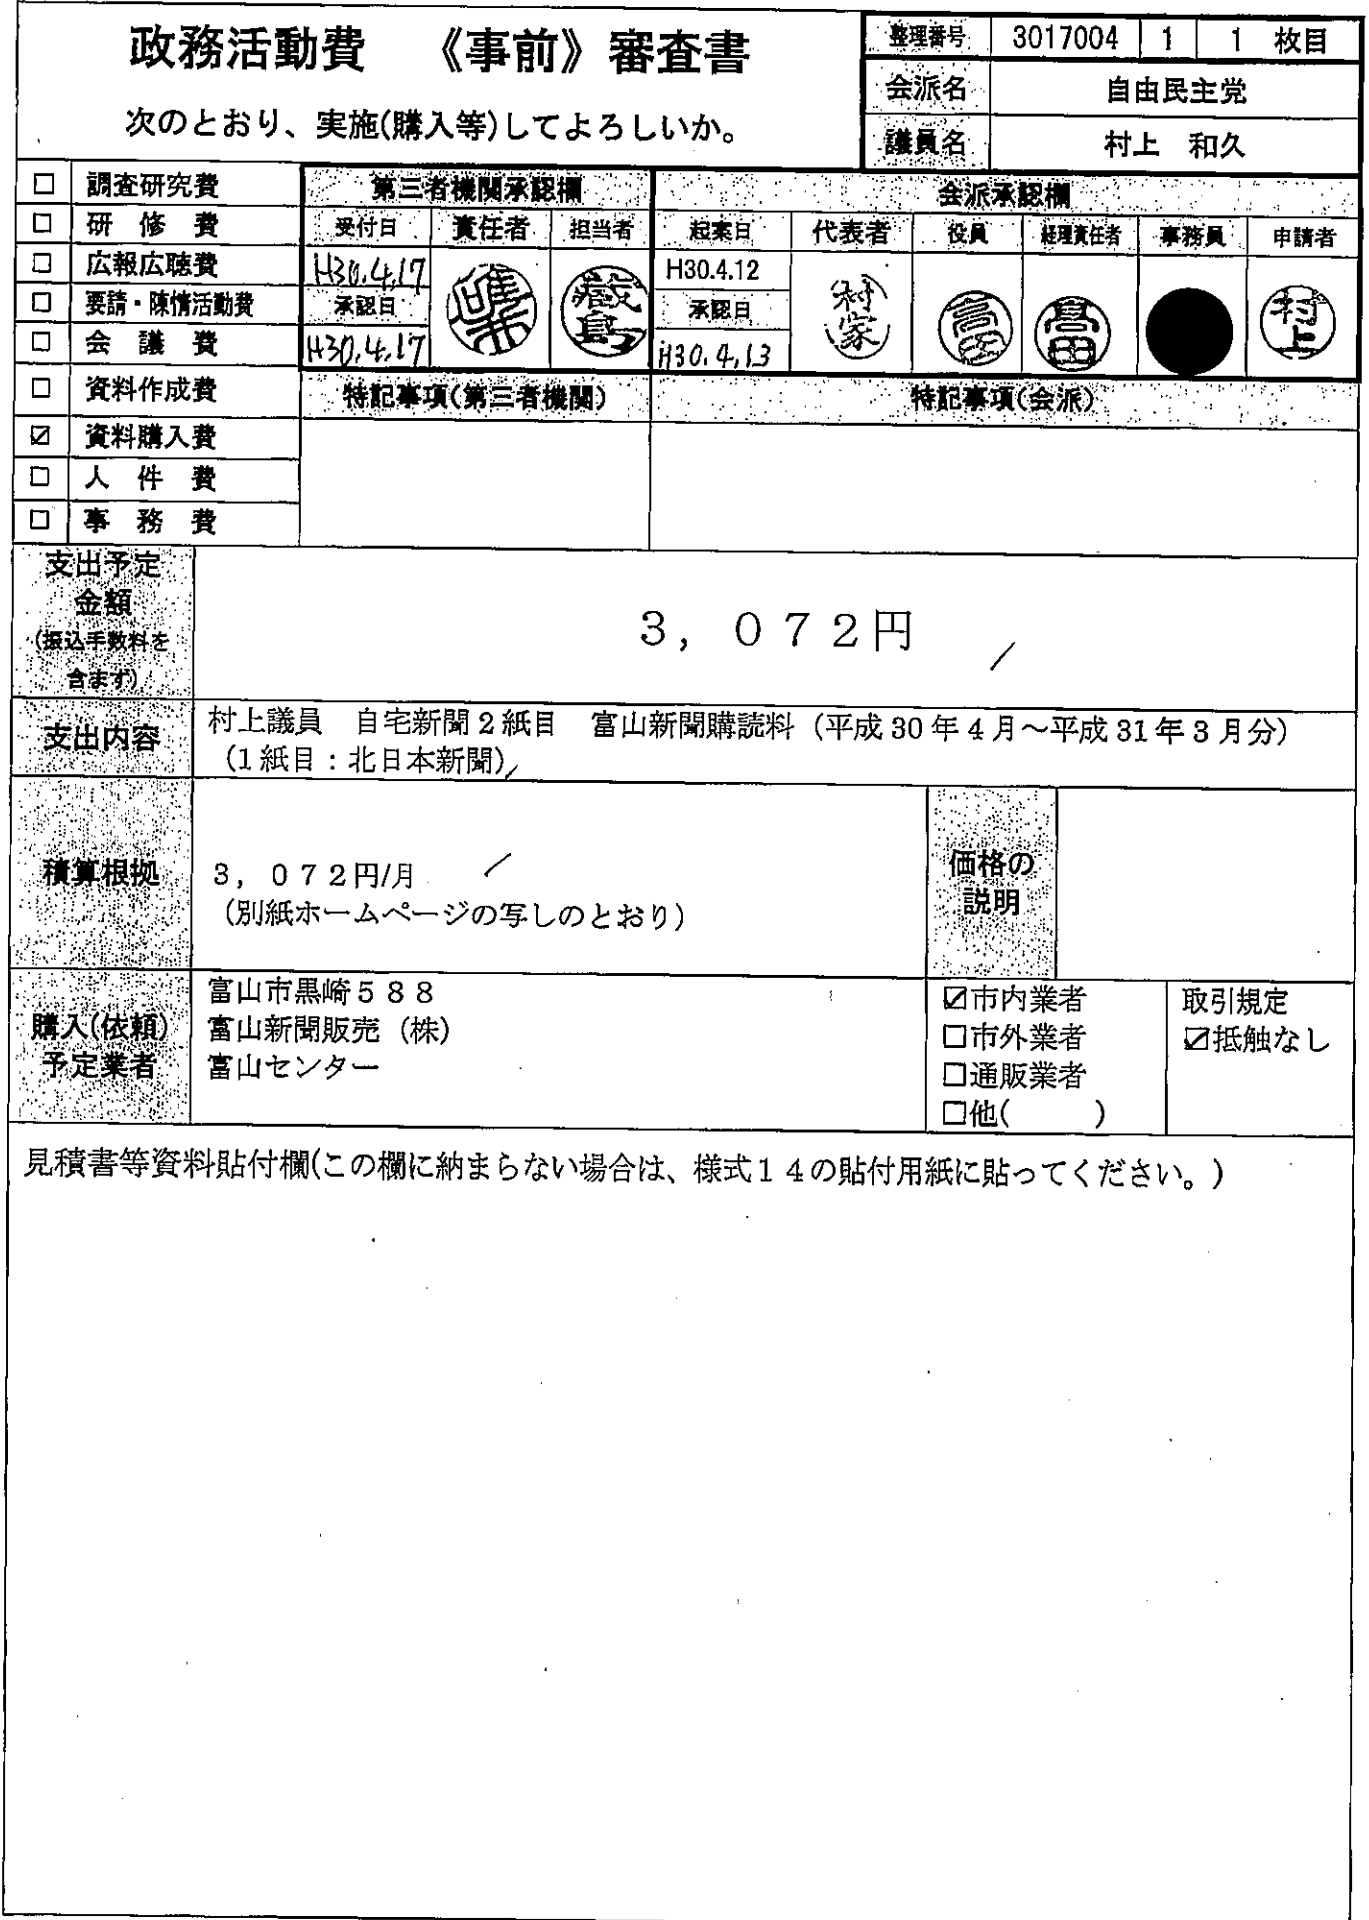 政務活動費　《事前》審査書
次のとおり、実施(購入等)してよろしいか。
整理番号 3017004 1 1 枚目
会派名 自由民主党
議員名 村上　和久
□ 調査研究費
□ 研　修　費
□ 広報広聴費
□ 要請・陳情活動費
□ 会　議　費
□ 資料作成費
☑ 資料購入費
□ 人　件　費
□ 事　務　費
第三者機関承認欄
受付日 責任者 担当者
H30.4.17
承認日
H30.4.17
会派承認欄
起案日 代表者 役員 経理責任者 事務員 申請者
H30.4.12
承認日
H30.4.13
村家 高田 高田 村上
特記事項(第三者機関) 特記事項(会派)
支出予定
金額
(振込手数料を
含まず)
３，０７２円
支出内容
村上議員　自宅新聞２紙目　富山新聞購読料（平成30年４月～平成31年３月分）
（１紙目：北日本新聞）
積算根拠
３，０７２円/月
（別紙ホームページの写しのとおり）
価格の
説明
購入(依頼)
予定業者
富山市黒崎５８８
富山新聞販売（株）
富山センター
☑市内業者
□市外業者
□通販業者
□他(　　　)
取引規定
☑抵触なし
見積書等資料貼付欄(この欄に納まらない場合は、様式１４の貼付用紙に貼ってください。)